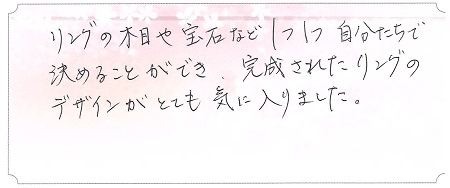 リングの木目や宝石など1つ1つ自分たちで
決めることができ、完成されたリングの
デザインがとても気に入りました。